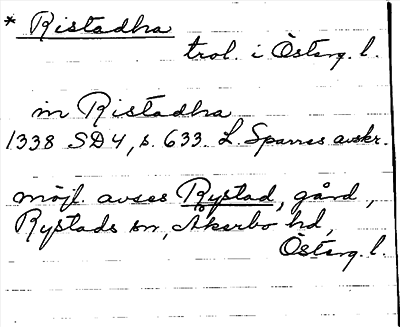 * Ristadha
trol. i Österg. l.
in Ristadha
1338 SD4, s. 633. L. Sparres avskr.
möjl. avses Rystad, gård,
Rystads sn, Åkerbo hd,
Österg. l.